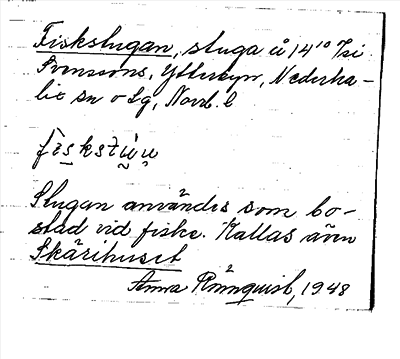 Fiskstugan, stuga å 14¹⁰ Tri
Svensons, Ytterbyn, Nederka-
lix sn o Lg, Norrb. l
fìskstùu
Stugan användes som bo-
stad vid fiske. Kallas även
Skärihuset
Anna Rönnquist, 1948